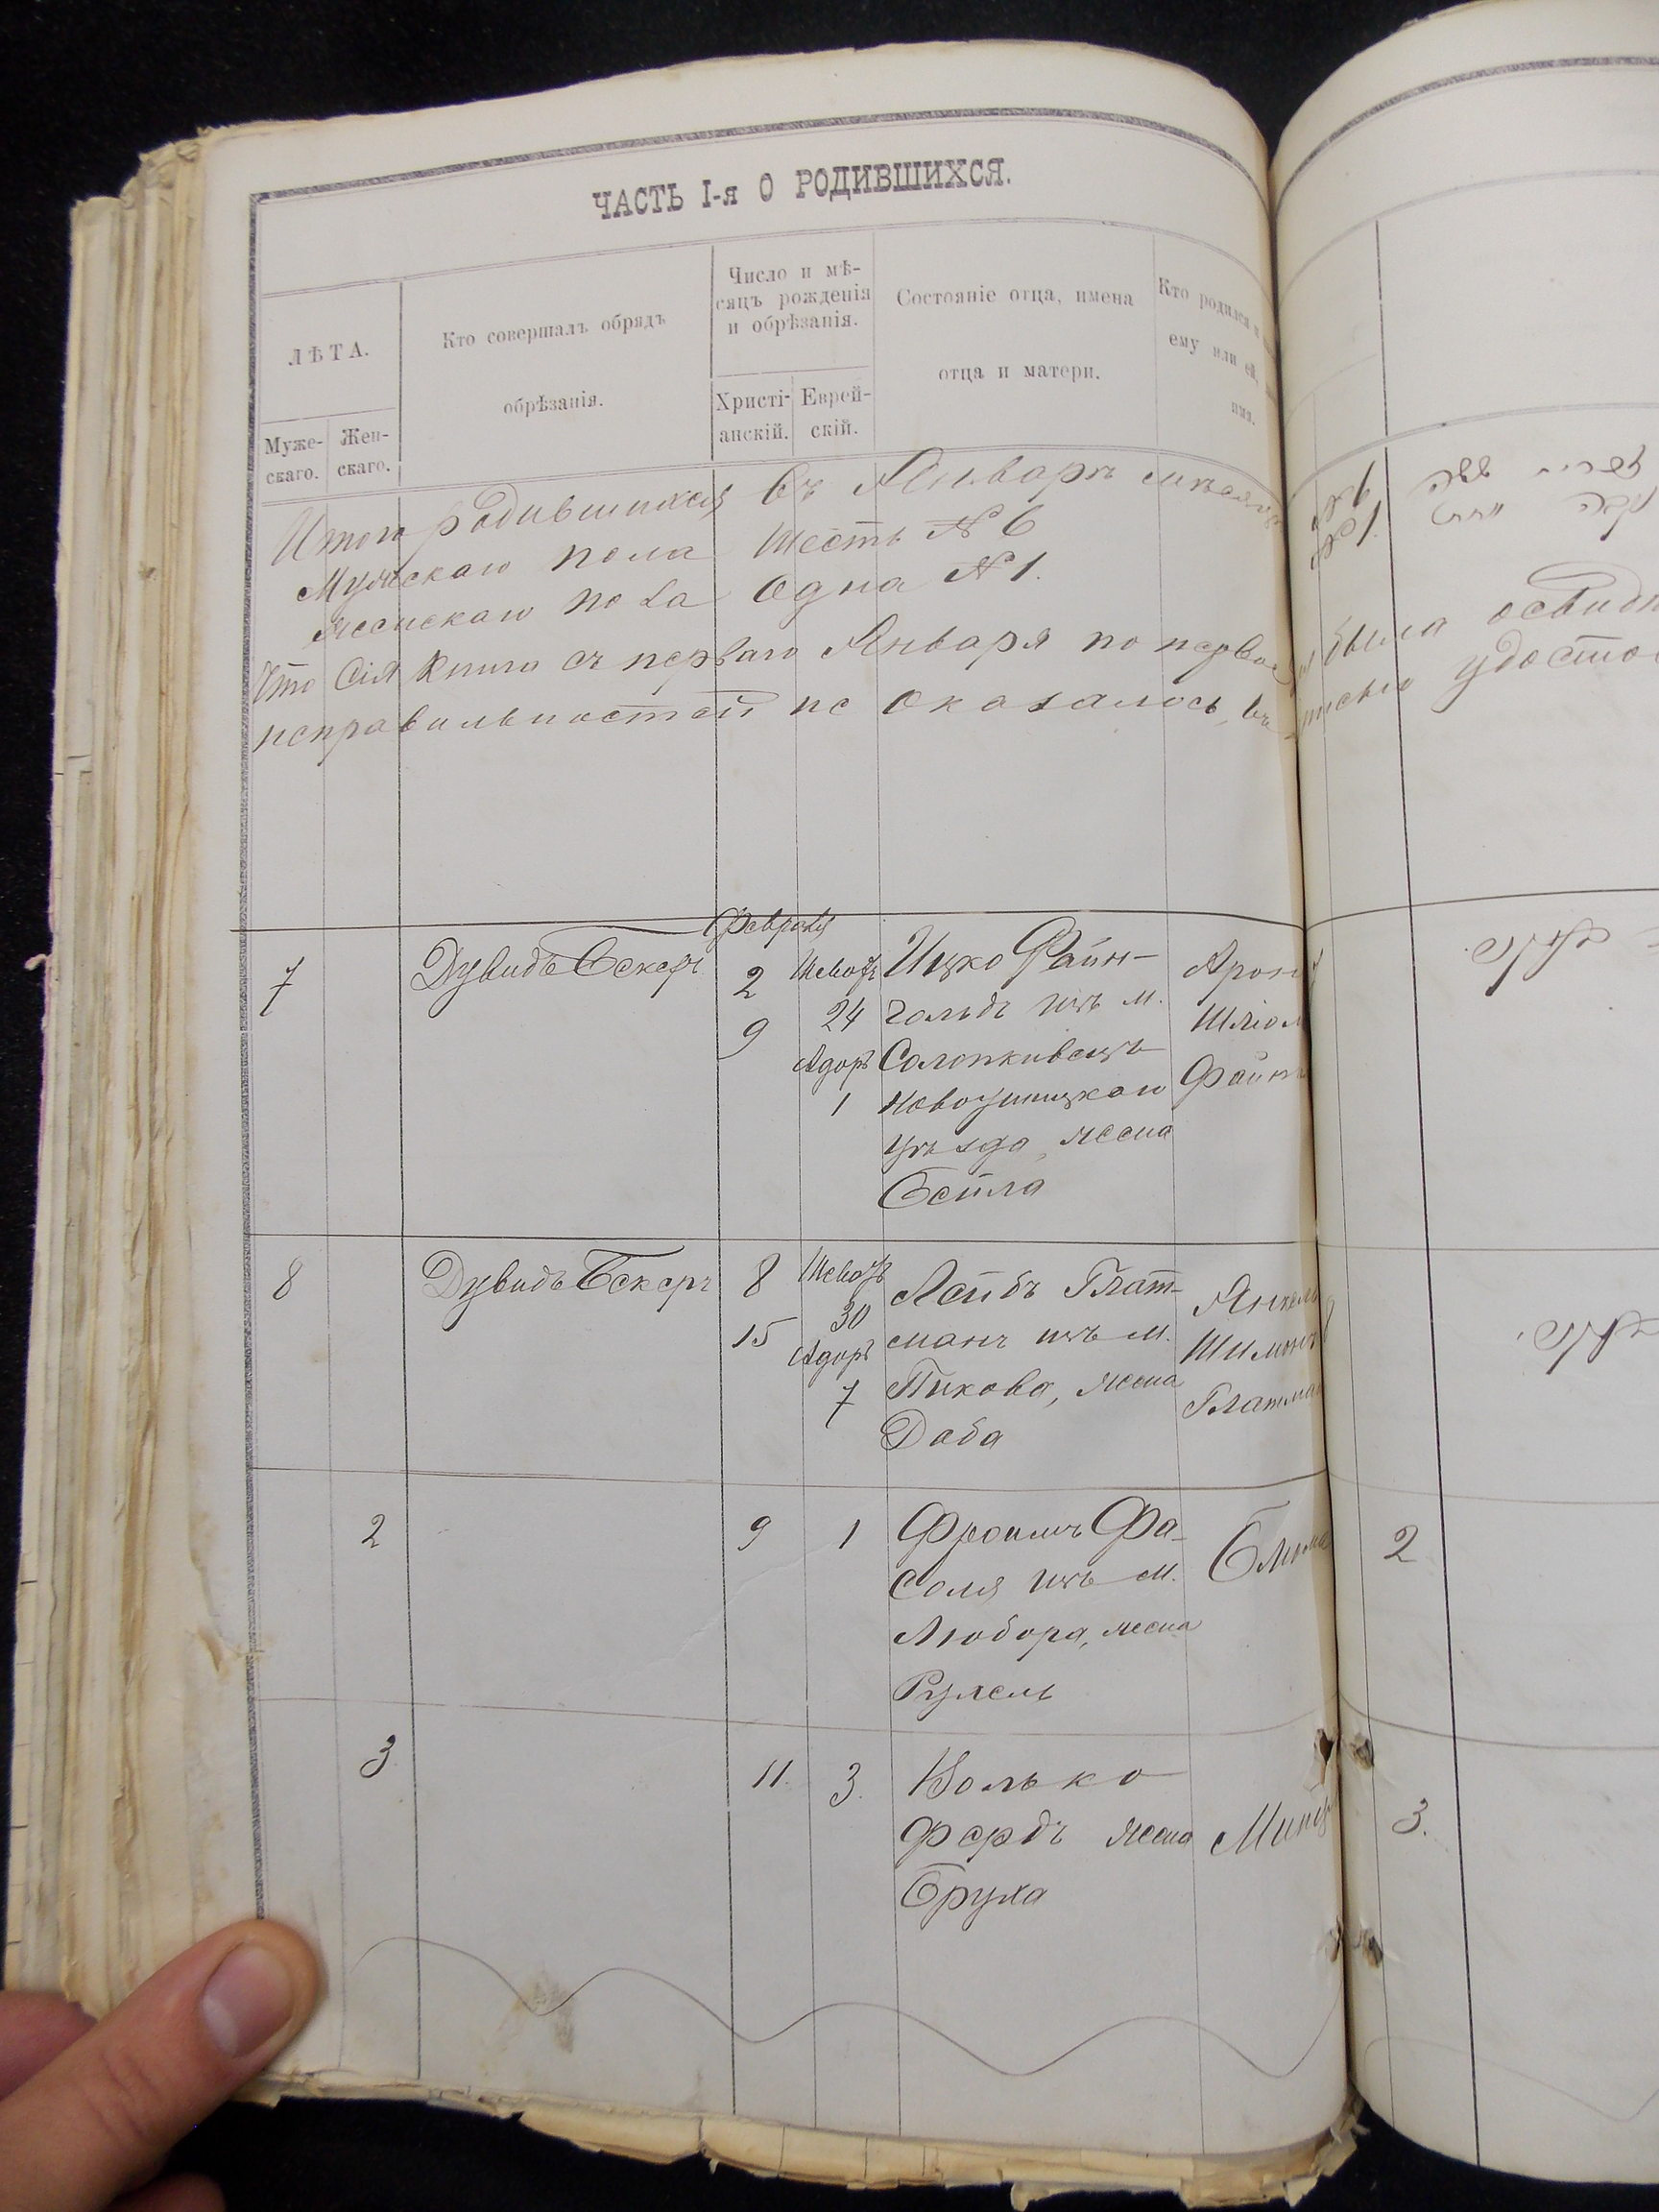 ЧАСТЬ I-я О РОДИВШИХСЯ.
ЛѢТА.
Муже-
скаго.
Жен-
скаго.
Кто совершалъ обрядъ
обрѣзанія.
Число и мѣ-
сяцъ рожденія
и обрѣзанія.
Христі-
анскій.
Еврей-
скій.
Состояніе отца, имена
отца и матери.
Кто родился и
ему или ей,
Итого родившихся въ Январѣ мѣсяцѣ
Мужскаго пола шесть № 6
женскаго пола одна № 1.
Что сія книга съ перваго Января по первое
неправильностей не оказалось, въ
была
Февраля
7
Дувидъ Бекеръ
2
9
Шевотъ
24
Адоръ
1
Ицко Файн-
гольдъ изъ м.
Солопкивецъ
Новоушицкаго
уѣзда, жена
Бейла
Арон
Шліом
Файн
8
Дувидъ Бекеръ
8
15
Шевотъ
30
Адоръ
7
Лейбъ Глат-
манъ изъ м.
Пикова, жена
Доба
Янкель
Шимонъ
Глатман
2
9
1
Фроимъ Фа-
соля изъ м.
Любора, жена
Рухель
Блюма
2
3
11.
3.
Волько
Фердъ жена
Бруха
3.